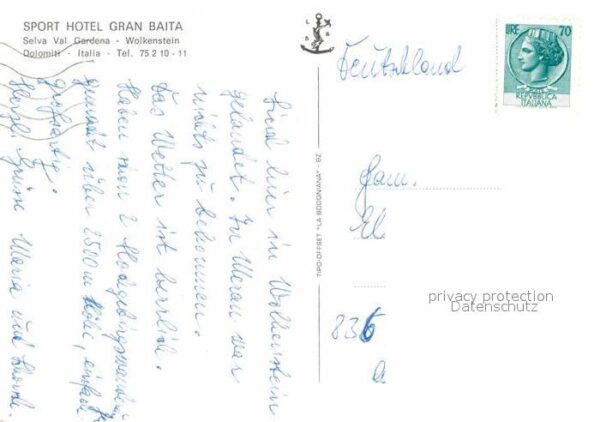 SPORT HOTEL GRAN BAITA
Selva Val Gardena - Wolkenstein
Dolomiti - Italia - Tel. 75 2 10 - 11
L B
B B
LIRE 70
REPVBBLICA
ITALIANA
TIPO-OFFSET "LA BODONIANA" - BZ
Sind hier in Wolkenstein
gelandet. In Meran war
nichts zu bekommen.
Das Wetter ist herrlich.
Haben schon 2 Hochgebirgswander
gemacht über 2500 m Höhe, einfach
großartig.
Herzl. Grüße Maria und
Deutschland
Fam.
El
836
privacy protection
Datenschutz